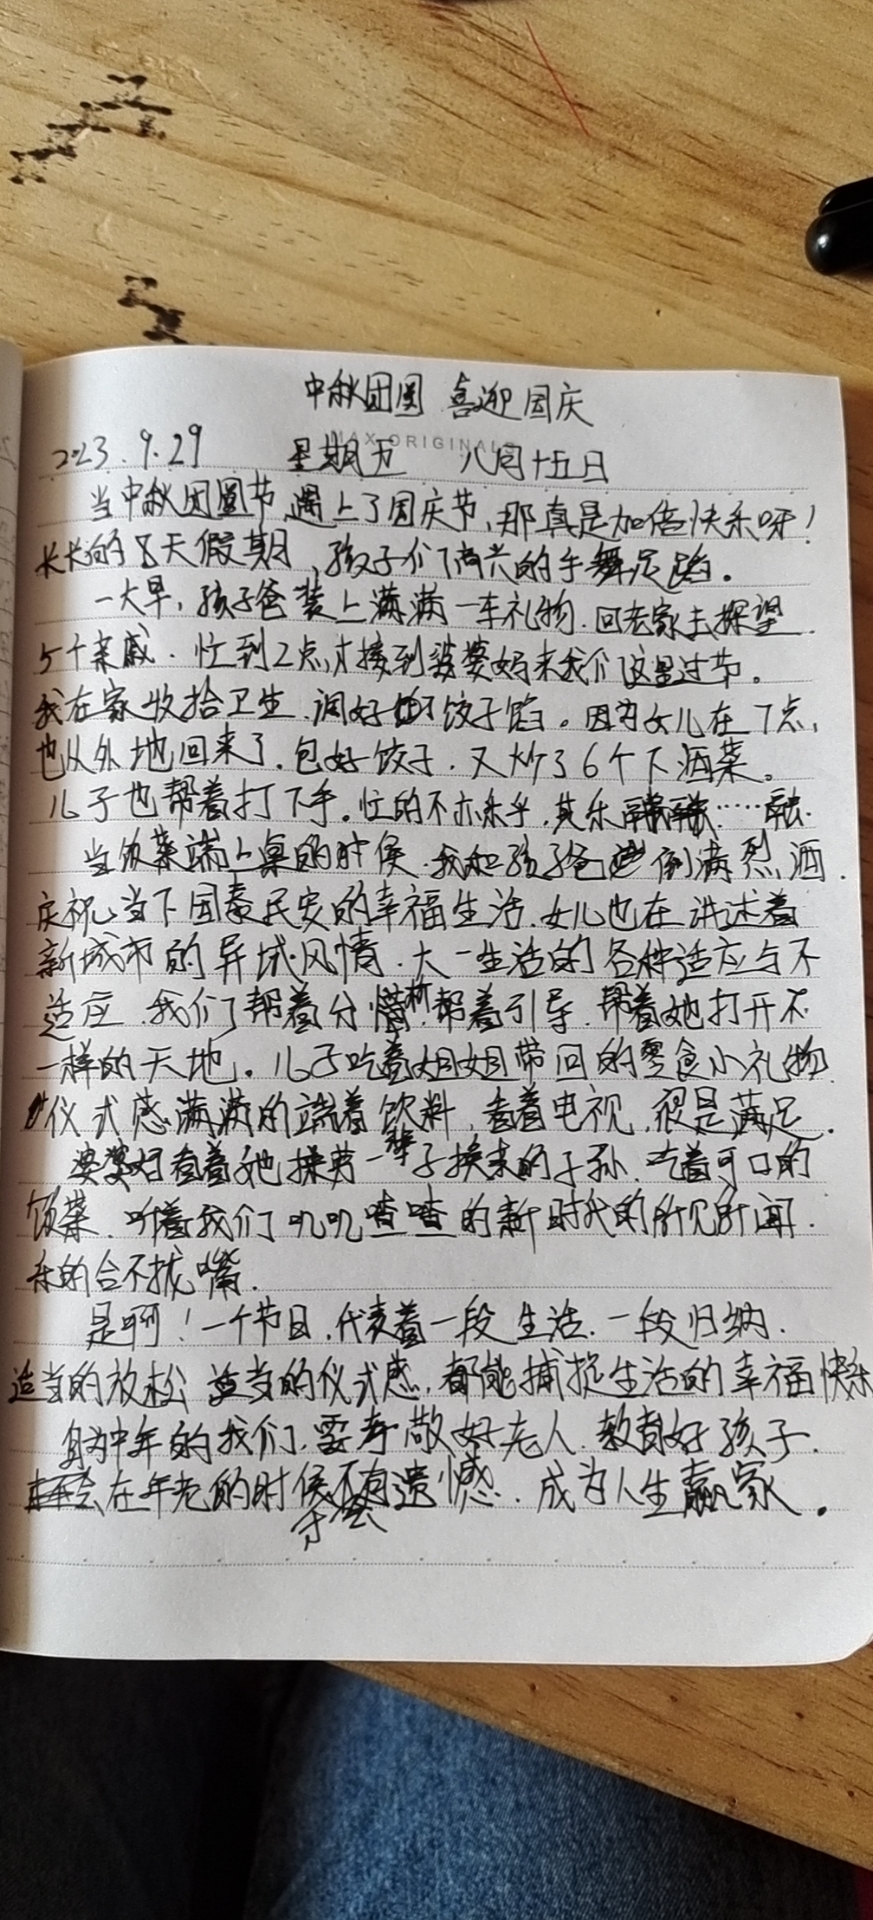 中秋团圆 喜迎国庆
MAX ORIGINALS
2023.9.29 星期五 八月十五日
当中秋团圆节遇上了国庆节,那真是加倍快乐呀!
长长的8天假期,孩子们高兴的手舞足蹈。
一大早,孩子爸装上满满一车礼物.回老家去探望
5个亲戚.忙到2点,才接到婆婆妈来我们这里过节。
我在家收拾卫生.调好饺子馅。因为女儿在7点,
也从外地回来了.包好饺子.又炒了6个下酒菜。
儿子也帮着打下手。忙的不亦乐乎,其乐融融……
当饭菜端上桌的时候.我和孩子爸倒满烈酒.
庆祝当下国泰民安的幸福生活.女儿也在讲述着
新城市的异域风情.大一生活的各种适应与不
适应.我们帮着分析,帮着引导.帮着她打开不
一样的天地。儿子吃着姐姐带回的零食小礼物.
仪式感满满的端着饮料,看着电视,很是满足.
婆婆妈看着她操劳一辈子换来的子孙.吃着可口的
饭菜.听着我们叽叽喳喳的新时代的所见所闻.
乐的合不拢嘴.
是啊!一个节日,代表着一段生活.一段归纳.
适当的放松 适当的仪式感,都能捕捉生活的幸福快乐
身为中年的我们,要孝敬好老人.教育好孩子.
在年老的时候才会不有遗憾.成为人生赢家。